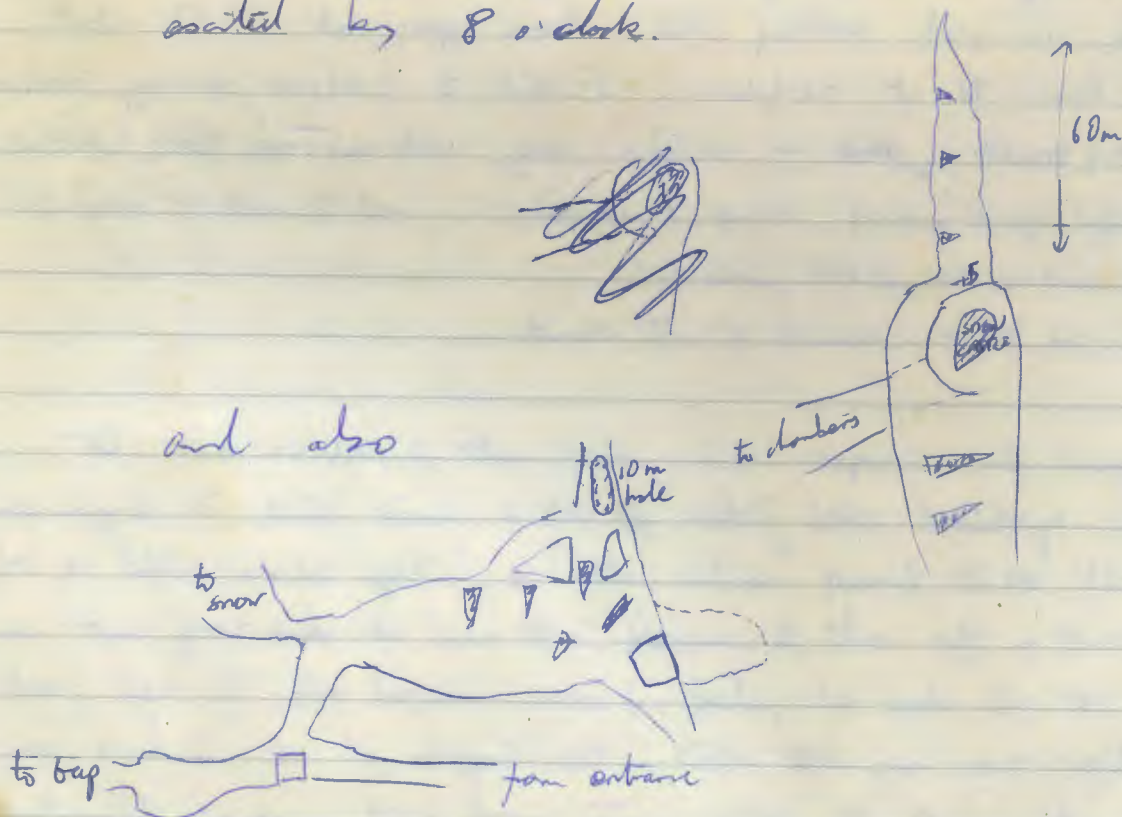 exited by 8 o'clock.
60m
5
SNOW
to chambers
and also
10m
hole
to
snow
to trap
from entrance